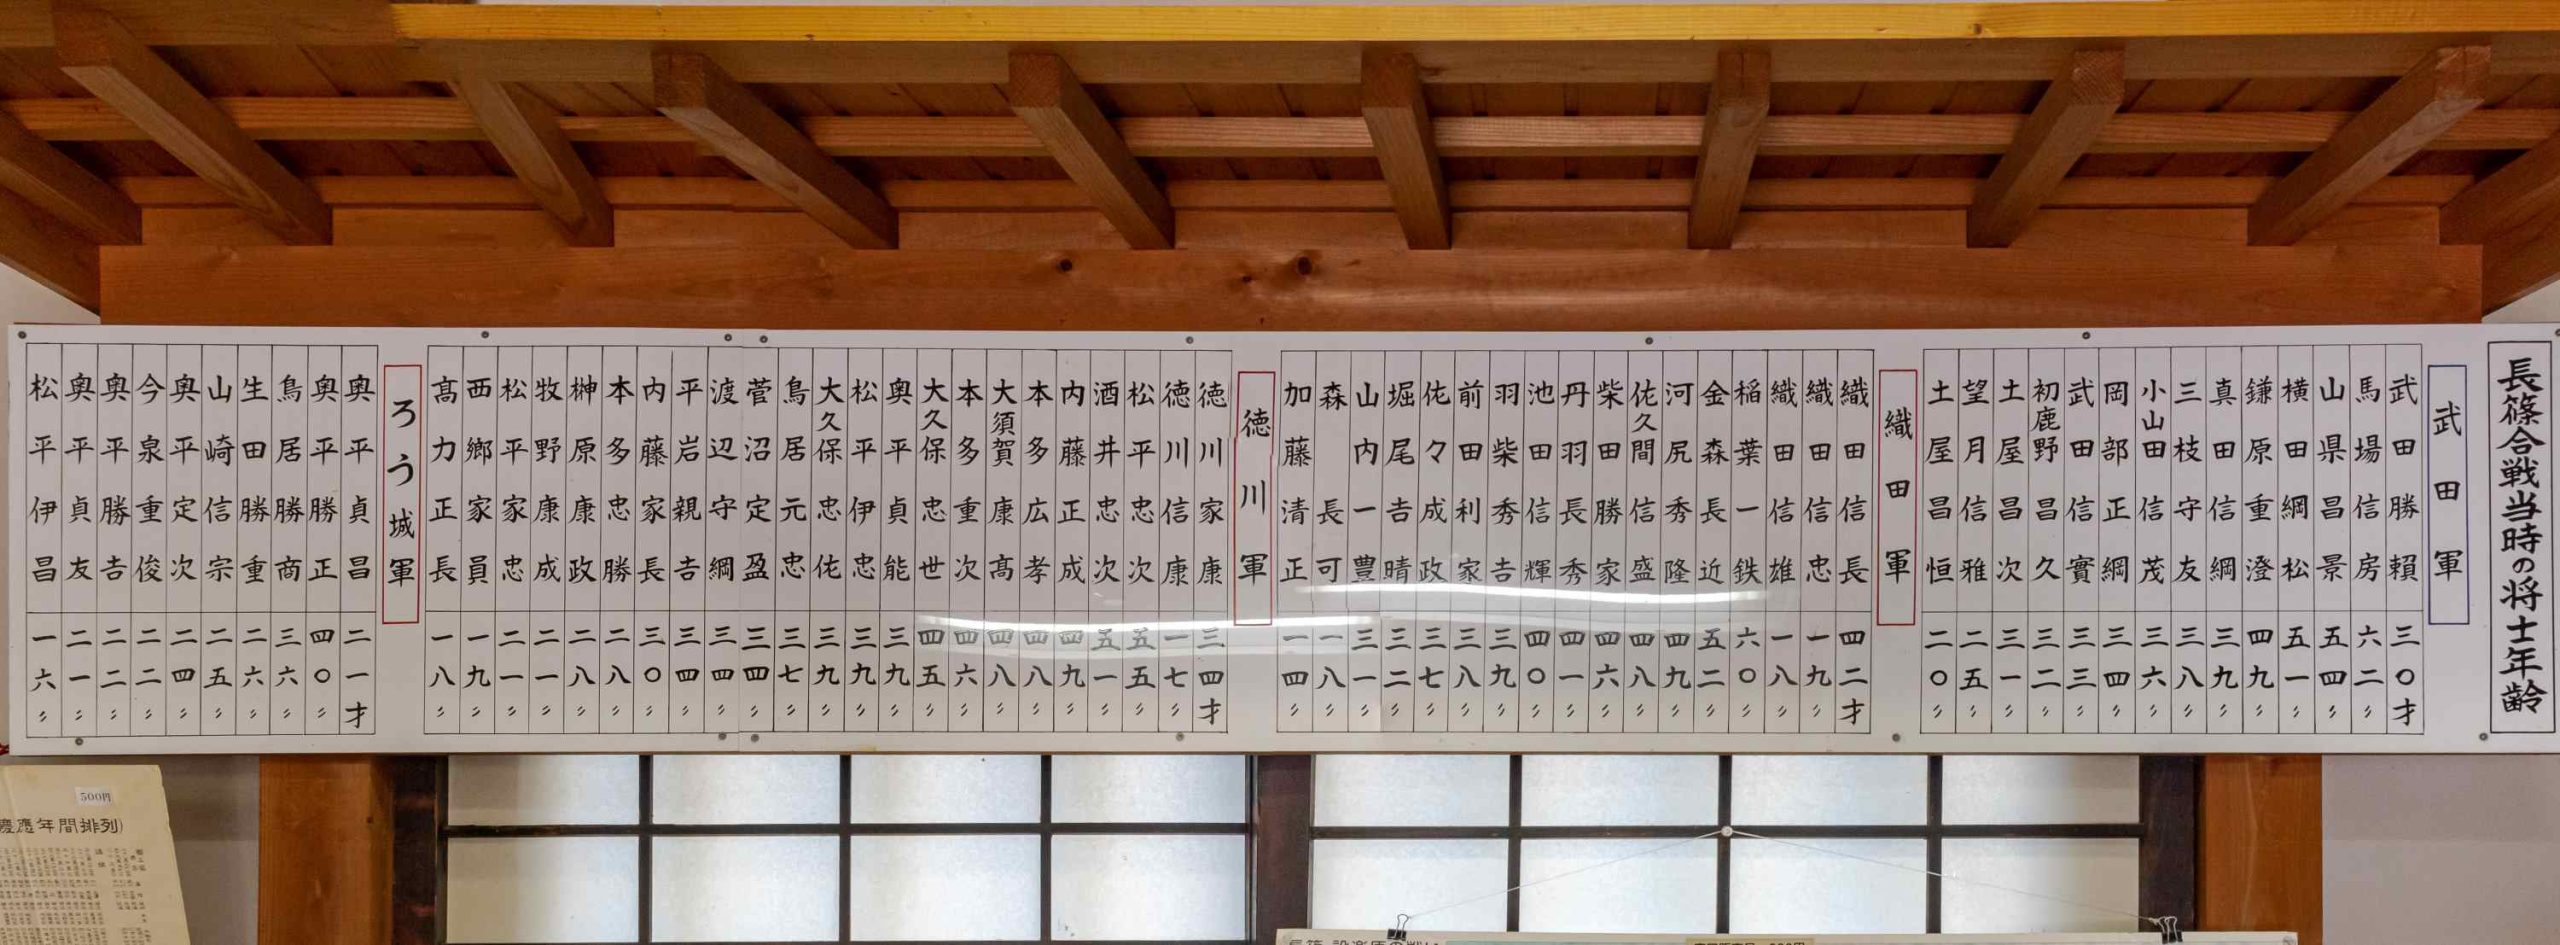 長篠合戦当時の将士年齢
武田軍
武田勝頼 三〇才
馬場信房 六二〃
山県昌景 五四〃
横田綱松 五一〃
鎌原重澄 四九〃
真田信綱 三九〃
三枝守友 三八〃
小山田信茂 三六〃
岡部正綱 三四〃
武田信實 三三〃
初鹿野昌久 三二〃
土屋昌次 三一〃
望月信雅 二五〃
土屋昌恒 二〇〃
織田軍
織田信長 四二才
織田信忠 一九〃
織田信雄 一八〃
稲葉一鉄 六〇〃
金森長近 五二〃
河尻秀隆 四九〃
佐久間信盛 四八〃
柴田勝家 四六〃
丹羽長秀 四一〃
池田信輝 四〇〃
羽柴秀吉 三九〃
前田利家 三八〃
佐々成政 三七〃
堀尾吉晴 三二〃
山内一豊 三一〃
森長可 一八〃
加藤清正 一四〃
徳川軍
徳川家康 三四才
徳川信康 一七〃
松平忠次 五五〃
酒井忠次 五一〃
内藤正成 四九〃
本多広孝 四八〃
大須賀康髙 四八〃
本多重次 四六〃
大久保忠世 四五〃
奥平貞能 三九〃
松平伊忠 三九〃
大久保忠佐 三九〃
鳥居元忠 三七〃
菅沼定盈 三四〃
渡辺守綱 三四〃
平岩親吉 三四〃
内藤家長 三〇〃
本多忠勝 二八〃
榊原康政 二八〃
牧野康成 二一〃
松平家忠 二一〃
西郷家員 一九〃
髙力正長 一八〃
ろう城軍
奥平貞昌 二一才
奥平勝正 四〇〃
鳥居勝商 三六〃
生田勝重 二六〃
山崎信宗 二五〃
奥平定次 二四〃
今泉重俊 二二〃
奥平勝吉 二二〃
奥平貞友 二一〃
松平伊昌 一六〃
500円
慶應年間排列)